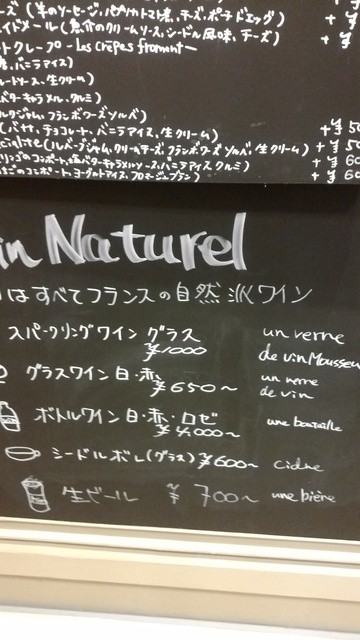 ーズ (羊のソーセージ、パプリカトマト煮、チーズ、ポーチドエッグ) +¥
イドメール (魚介のクリームソース、シードル風味、チーズ) +¥
ートクレープ - les crêpes froment -
糖、バニラアイス)
ートソース、生クリーム)
バターキャラメル、クルミ)
フランボワーズソルベ)
バナナ、チョコレート、バニラアイス、生クリーム) +¥50
cialité (ルバーブジャム、クリームチーズ、フランボワーズソルベ、生クリーム) +¥50
リンゴのコンポート、塩バターキャラメルソース、バニラアイス、クルミ) +¥60
ちごのコンポート、ヨーグルトアイス、フロマージュブラン) +¥60
in Naturel
はすべてフランスの自然派ワイン
スパークリングワイン グラス un verre
¥1000 de vin Mousseu
グラスワイン 白・赤 un verre
¥650〜 de vin
ボトルワイン 白・赤・ロゼ une bouteille
¥4,000〜
シードル ボレ(グラス) ¥600〜 cidre
生ビール ¥700〜 une bière